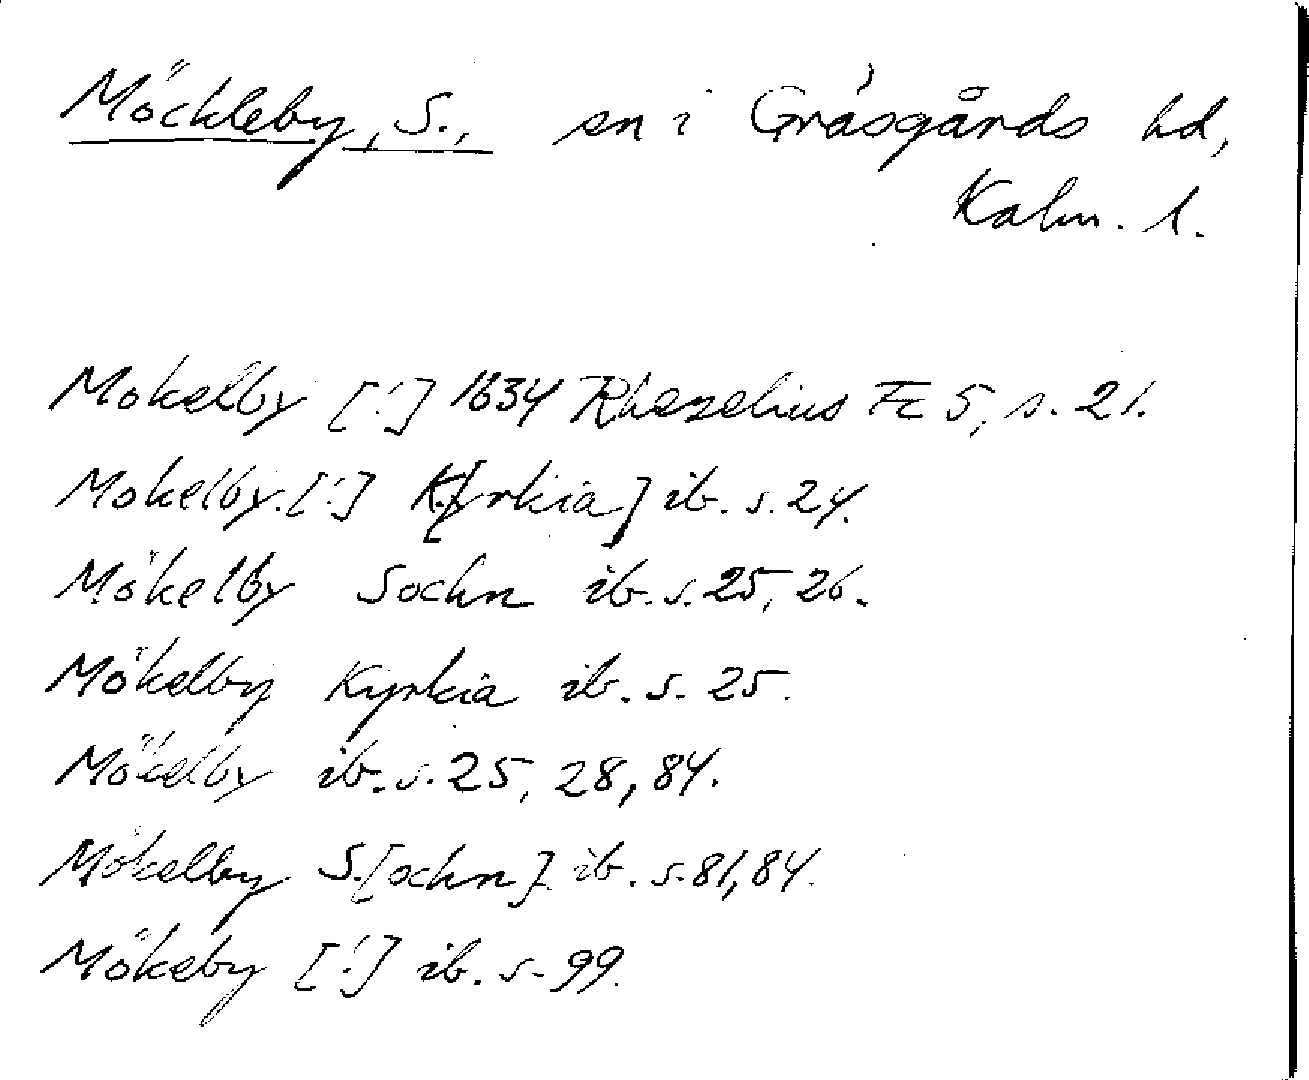 Möckleby, S., sn i Gräsgårds hd,
Kalm. l.
Mokelby [!] 1634 Rhezelius Fc 5, s. 21.
Mokelby [!] K.[yrkia] ib. s. 24.
Mökelby Sochn ib. s. 25, 26.
Mökelby Kyrkia ib. s. 25.
Mökelby ib. s. 25, 28, 84.
Mökelby S.[ochn] ib. s. 81, 84.
Mökeby [!] ib. s. 99.